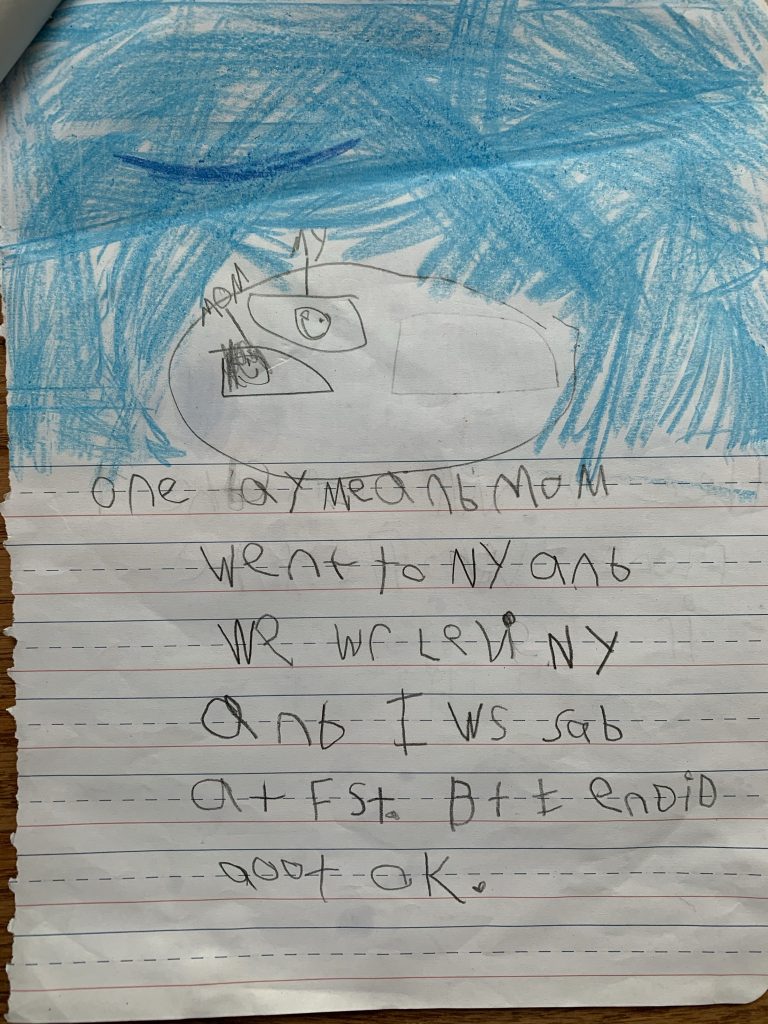 MY
MOM
one day Me anb MoM
went to NY anb
We wr Levi NY
anb I ws sab
at Fst. Btt enDiD
aoot oK.